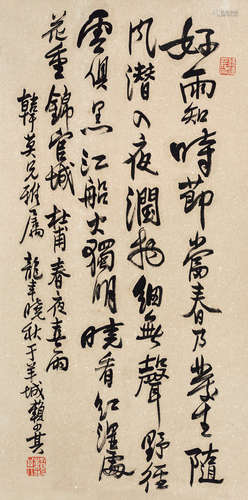 好雨知時節當春乃發生隨
風潛入夜潤物細無聲野徑
雲俱黑江船火獨明曉看紅溼處
花重錦官城 杜甫春夜喜雨
韓莫兄雅屬 龍年秋于羊城賴少其